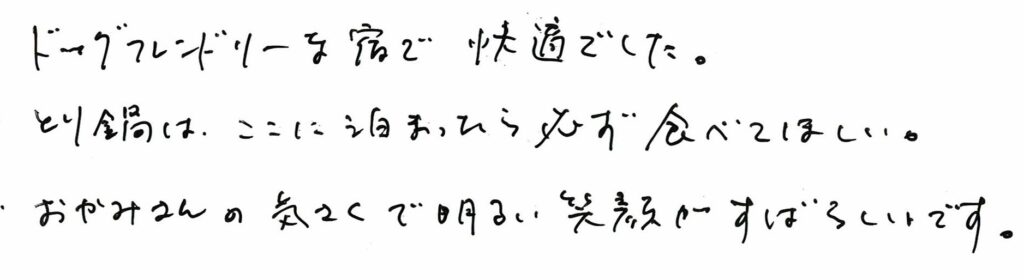 ドッグフレンドリーな宿で 快適でした。
とり鍋は、ここに泊まったら必ず食べてほしい。
おかみさんの気さくで明るい笑顔がすばらしいです。